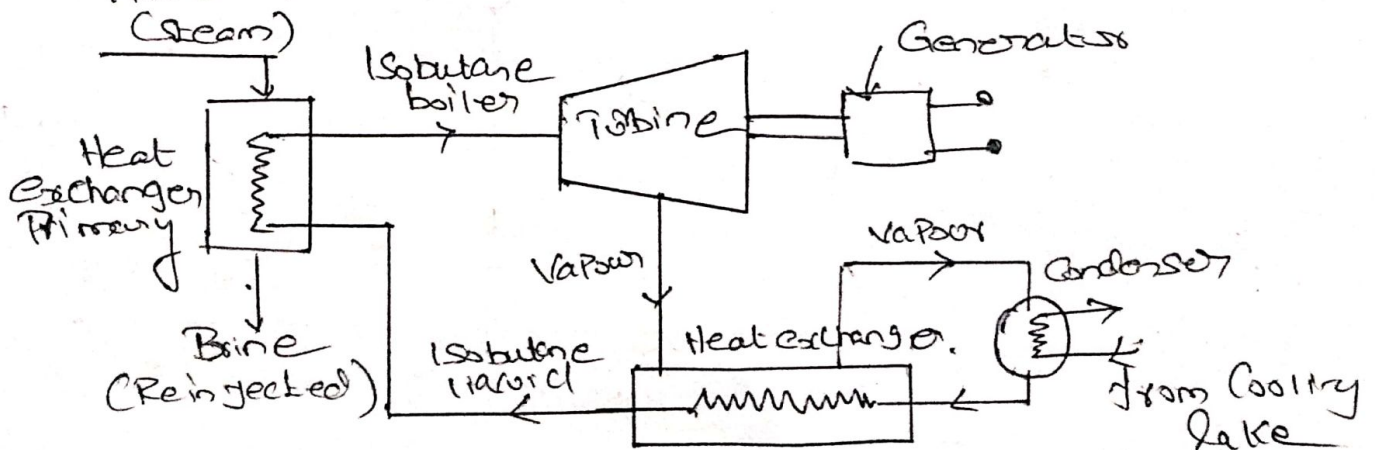 (Steam)
Generator
Isobutane
boiler
Turbine
Heat
exchanger
Primary
Vapour
Vapour
Condenser
Brine
(Reinjected)
Isobutane
liquid
Heat exchanger.
From Cooling
lake